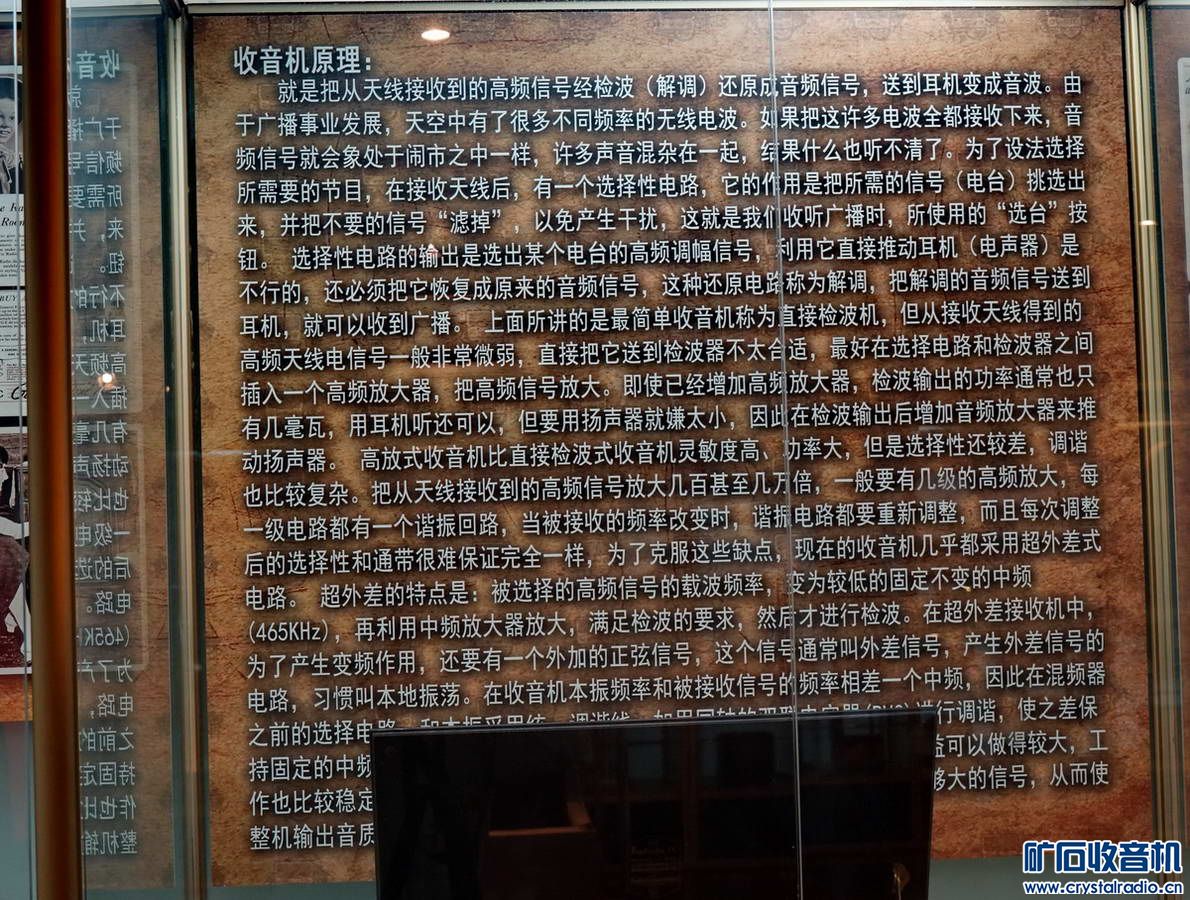 收音机原理：
就是把从天线接收到的高频信号经检波（解调）还原成音频信号，送到耳机变成音波。由
于广播事业发展，天空中有了很多不同频率的无线电波。如果把这许多电波全都接收下来，音
频信号就会象处于闹市之中一样，许多声音混杂在一起，结果什么也听不清了。为了设法选择
所需要的节目，在接收天线后，有一个选择性电路，它的作用是把所需的信号（电台）挑选出
来，并把不要的信号“滤掉”，以免产生干扰，这就是我们收听广播时，所使用的“选台”按
钮。 选择性电路的输出是选出某个电台的高频调幅信号，利用它直接推动耳机（电声器）是
不行的，还必须把它恢复成原来的音频信号，这种还原电路称为解调，把解调的音频信号送到
耳机，就可以收到广播。 上面所讲的是最简单收音机称为直接检波机，但从接收天线得到的
高频天线电信号一般非常微弱，直接把它送到检波器不太合适，最好在选择电路和检波器之间
插入一个高频放大器，把高频信号放大。即使已经增加高频放大器，检波输出的功率通常也只
有几毫瓦，用耳机听还可以，但要用扬声器就嫌太小，因此在检波输出后增加音频放大器来推
动扬声器。 高放式收音机比直接检波式收音机灵敏度高、功率大，但是选择性还较差，调谐
也比较复杂。把从天线接收到的高频信号放大几百甚至几万倍，一般要有几级的高频放大，每
一级电路都有一个谐振回路，当被接收的频率改变时，谐振电路都要重新调整，而且每次调整
后的选择性和通带很难保证完全一样，为了克服这些缺点，现在的收音机几乎都采用超外差式
电路。 超外差的特点是：被选择的高频信号的载波频率，变为较低的固定不变的中频
(465KHz)，再利用中频放大器放大，满足检波的要求，然后才进行检波。在超外差接收机中，
为了产生变频作用，还要有一个外加的正弦信号，这个信号通常叫外差信号，产生外差信号的
电路，习惯叫本地振荡。在收音机本振频率和被接收信号的频率相差一个中频，因此在混频器
之前的选择电路，和本振采用统一调谐线，如用同轴的双联电容器(PVC)进行调谐，使之差保
持固定的中频 益可以做得较大，工
作也比较稳定 够大的信号，从而使
整机输出音质
矿石收音机
www.crystalradio.cn